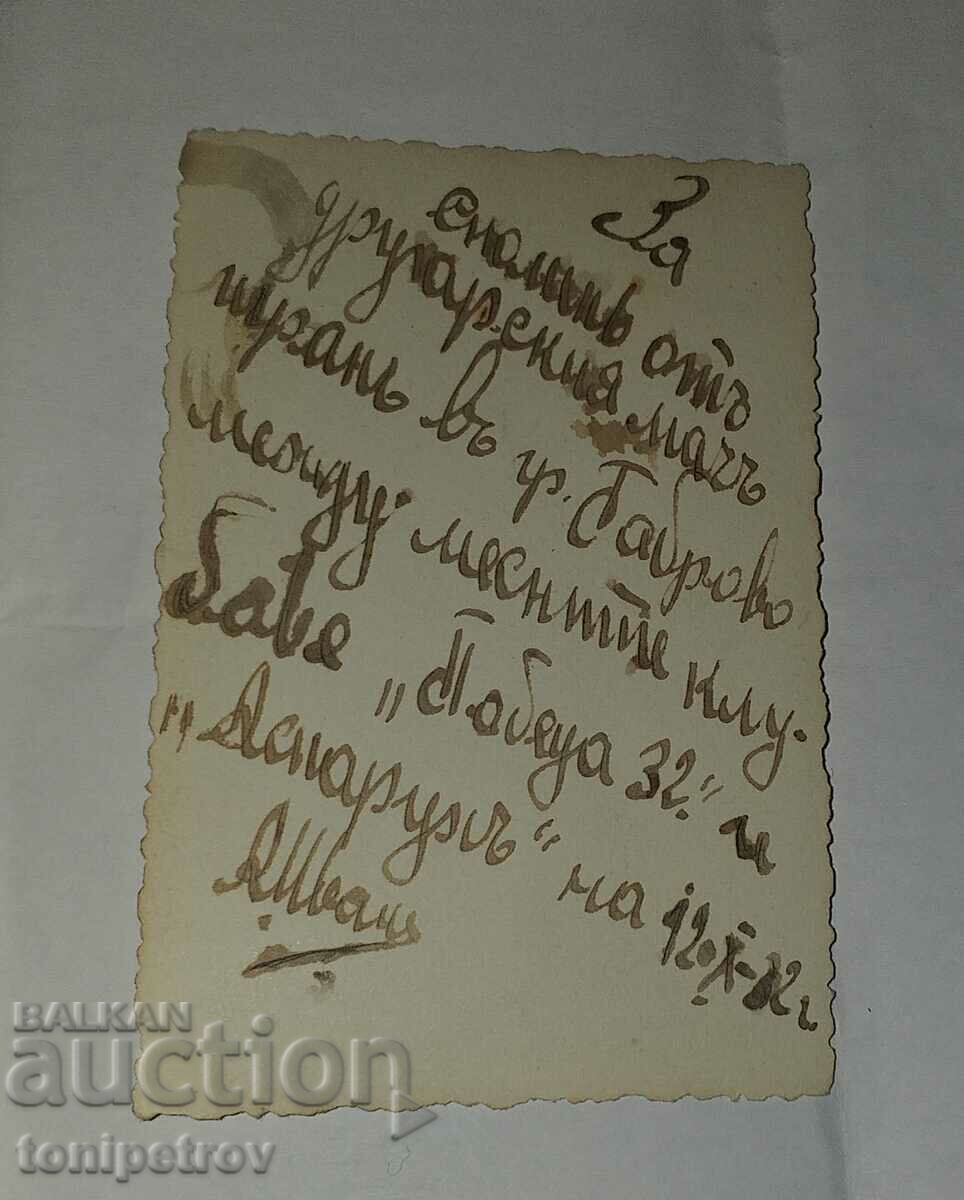 За
споминъ отъ
другарския мачъ
игранъ въ гр. Габрово
между местните клу.
бове „Победа 32" и
„Аспарухъ" на 12-X-32 г.
BALKAN
auction
tonipetrov